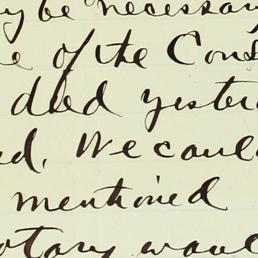 y be necessary
e of the Cons
died yester
ed. We could
mentioned
otary would